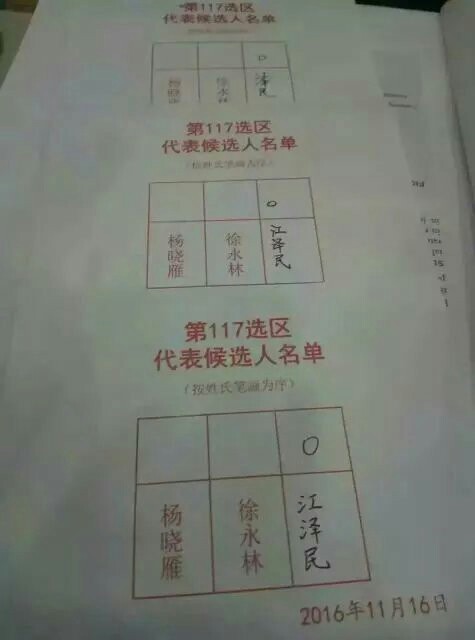 第117选区
代表候选人名单
O
杨晓雁 徐永林 江泽民
第117选区
代表候选人名单
(按姓氏笔画为序)
O
杨晓雁 徐永林 江泽民
第117选区
代表候选人名单
(按姓氏笔画为序)
O
杨晓雁 徐永林 江泽民
2016年11月16日